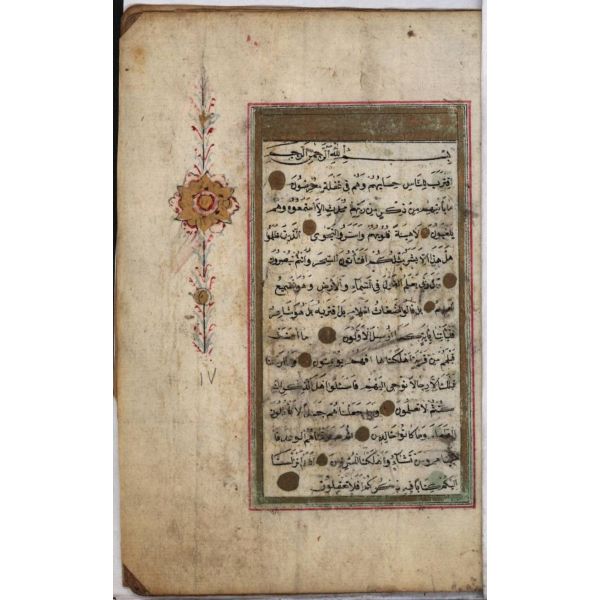 بسم الله الرحمن الرحيم
اقترب للناس حسابهم وهم في غفلة معرضون
ما يأتيهم من ذكر من ربهم محدث الا استمعوه وهم
يلعبون لاهية قلوبهم واسروا النجوى الذين ظلموا
هل هذا الا بشر مثلكم افتأتون السحر وانتم تبصرون
قال ربي يعلم القول في السماء والأرض وهو السميع
العليم بل قالوا اضغاث احلام بل افتريه بل هو شاعر
فليأتنا بآية كما ارسل الاولون ما امنت
قبلهم من قرية اهلكناها افهم يؤمنون وما ارسلنا
قبلك الا رجالا نوحي اليهم فاسئلوا اهل الذكر ان
كنتم لا تعلمون وما جعلناهم جسدا لا يأكلون
الطعام وما كانوا خالدين ثم صدقناهم الوعد فا
نجيناهم ومن نشاء واهلكنا المسرفين لقد انزلنا
اليكم كتابا فيه ذكركم افلا تعقلون
١٧